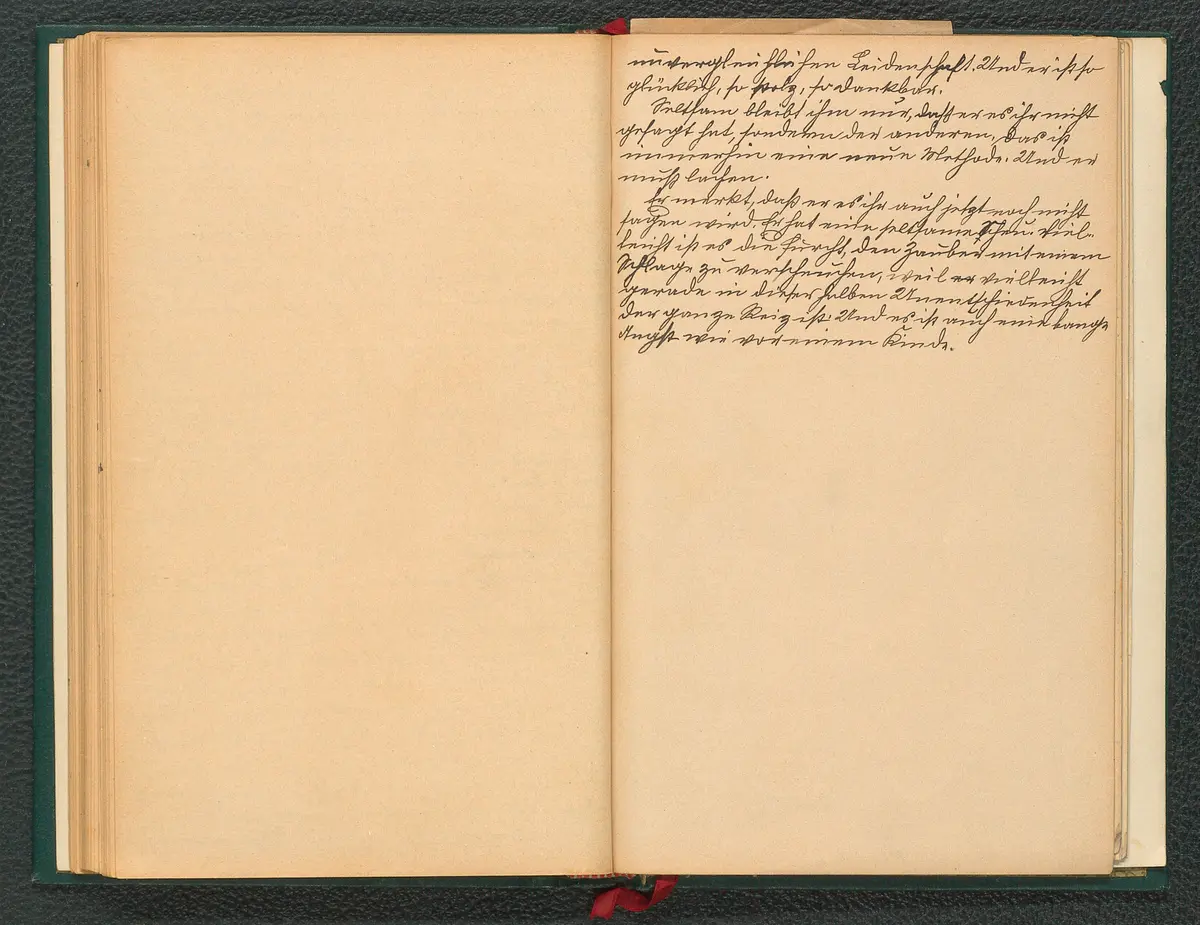 unvergleichlichen Leidenschaft. Und er ist so
glücklich, so stolz, so dankbar.
Seltsam bleibt ihm nur, daß er es ihr nicht
gesagt hat, sondern der anderen, das ist
immerhin eine neue Methode. Und er
muß lachen.
Er merkt, daß er es ihr auch jetzt noch nicht
sagen wird. Er hat eine seltsame Scheu. Viel-
leicht ist es die Furcht, den Zauber mit einem
Schlage zu verscheuchen, weil er vielleicht
gerade in dieser halben Unentschiedenheit
der ganze Reiz ist. Und es ist auch eine bange
Angst wie vor einem Kinde.